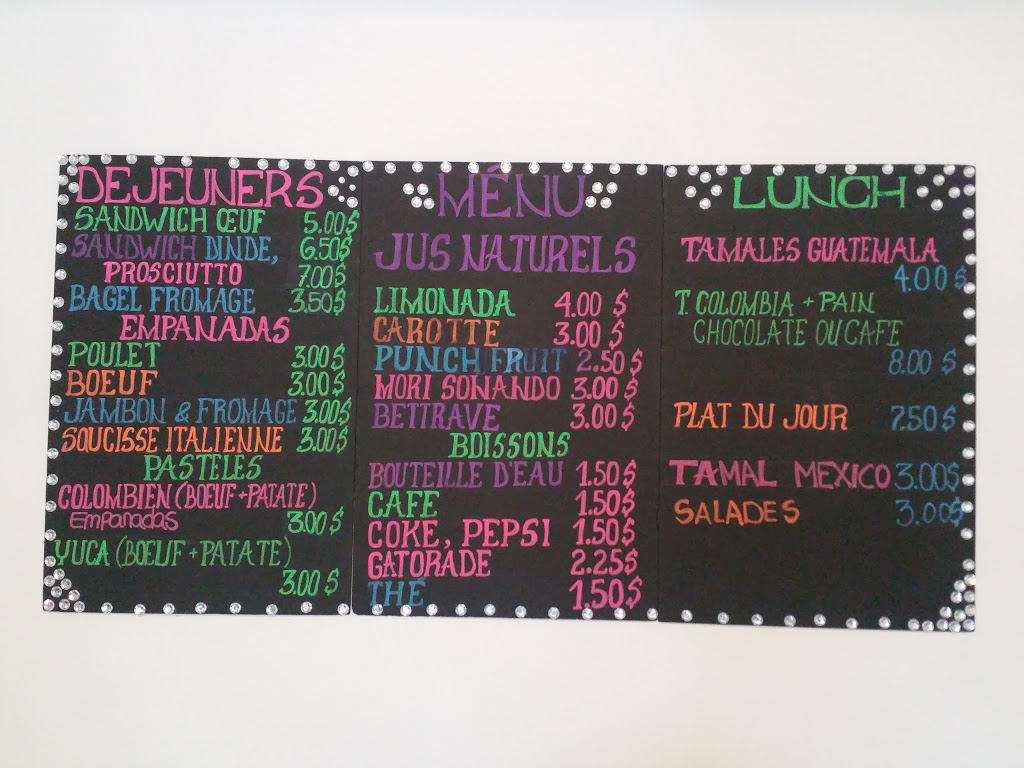 DEJEUNERS
SANDWICH ŒUF 5.00$
SANDWICH DINDE, 6.50$
PROSCIUTTO 7.00$
BAGEL FROMAGE 3.50$
EMPANADAS
POULET 3.00$
BOEUF 3.00$
JAMBON & FROMAGE 3.00$
SOUCISSE ITALIENNE 3.00$
PASTELES
COLOMBIEN (BOEUF+PATATE)
EMPANADAS 3.00$
YUCA (BOEUF+PATATE)
3.00$
MÉNU
JUS NATURELS
LIMONADA 4.00 $
CAROTTE 3.00 $
PUNCH FRUIT 2.50 $
MORI SONANDO 3.00 $
BETTRAVE 3.00 $
BOISSONS
BOUTEILLE D'EAU 1.50$
CAFE 1.50$
COKE, PEPSI 1.50$
GATORADE 2.25$
THÉ 1.50$
LUNCH
TAMALES GUATEMALA
4.00 $
T. COLOMBIA + PAIN
CHOCOLATE OU CAFE
8.00 $
PLAT DU JOUR 7.50$
TAMAL MEXICO 3.00$
SALADES 3.00$